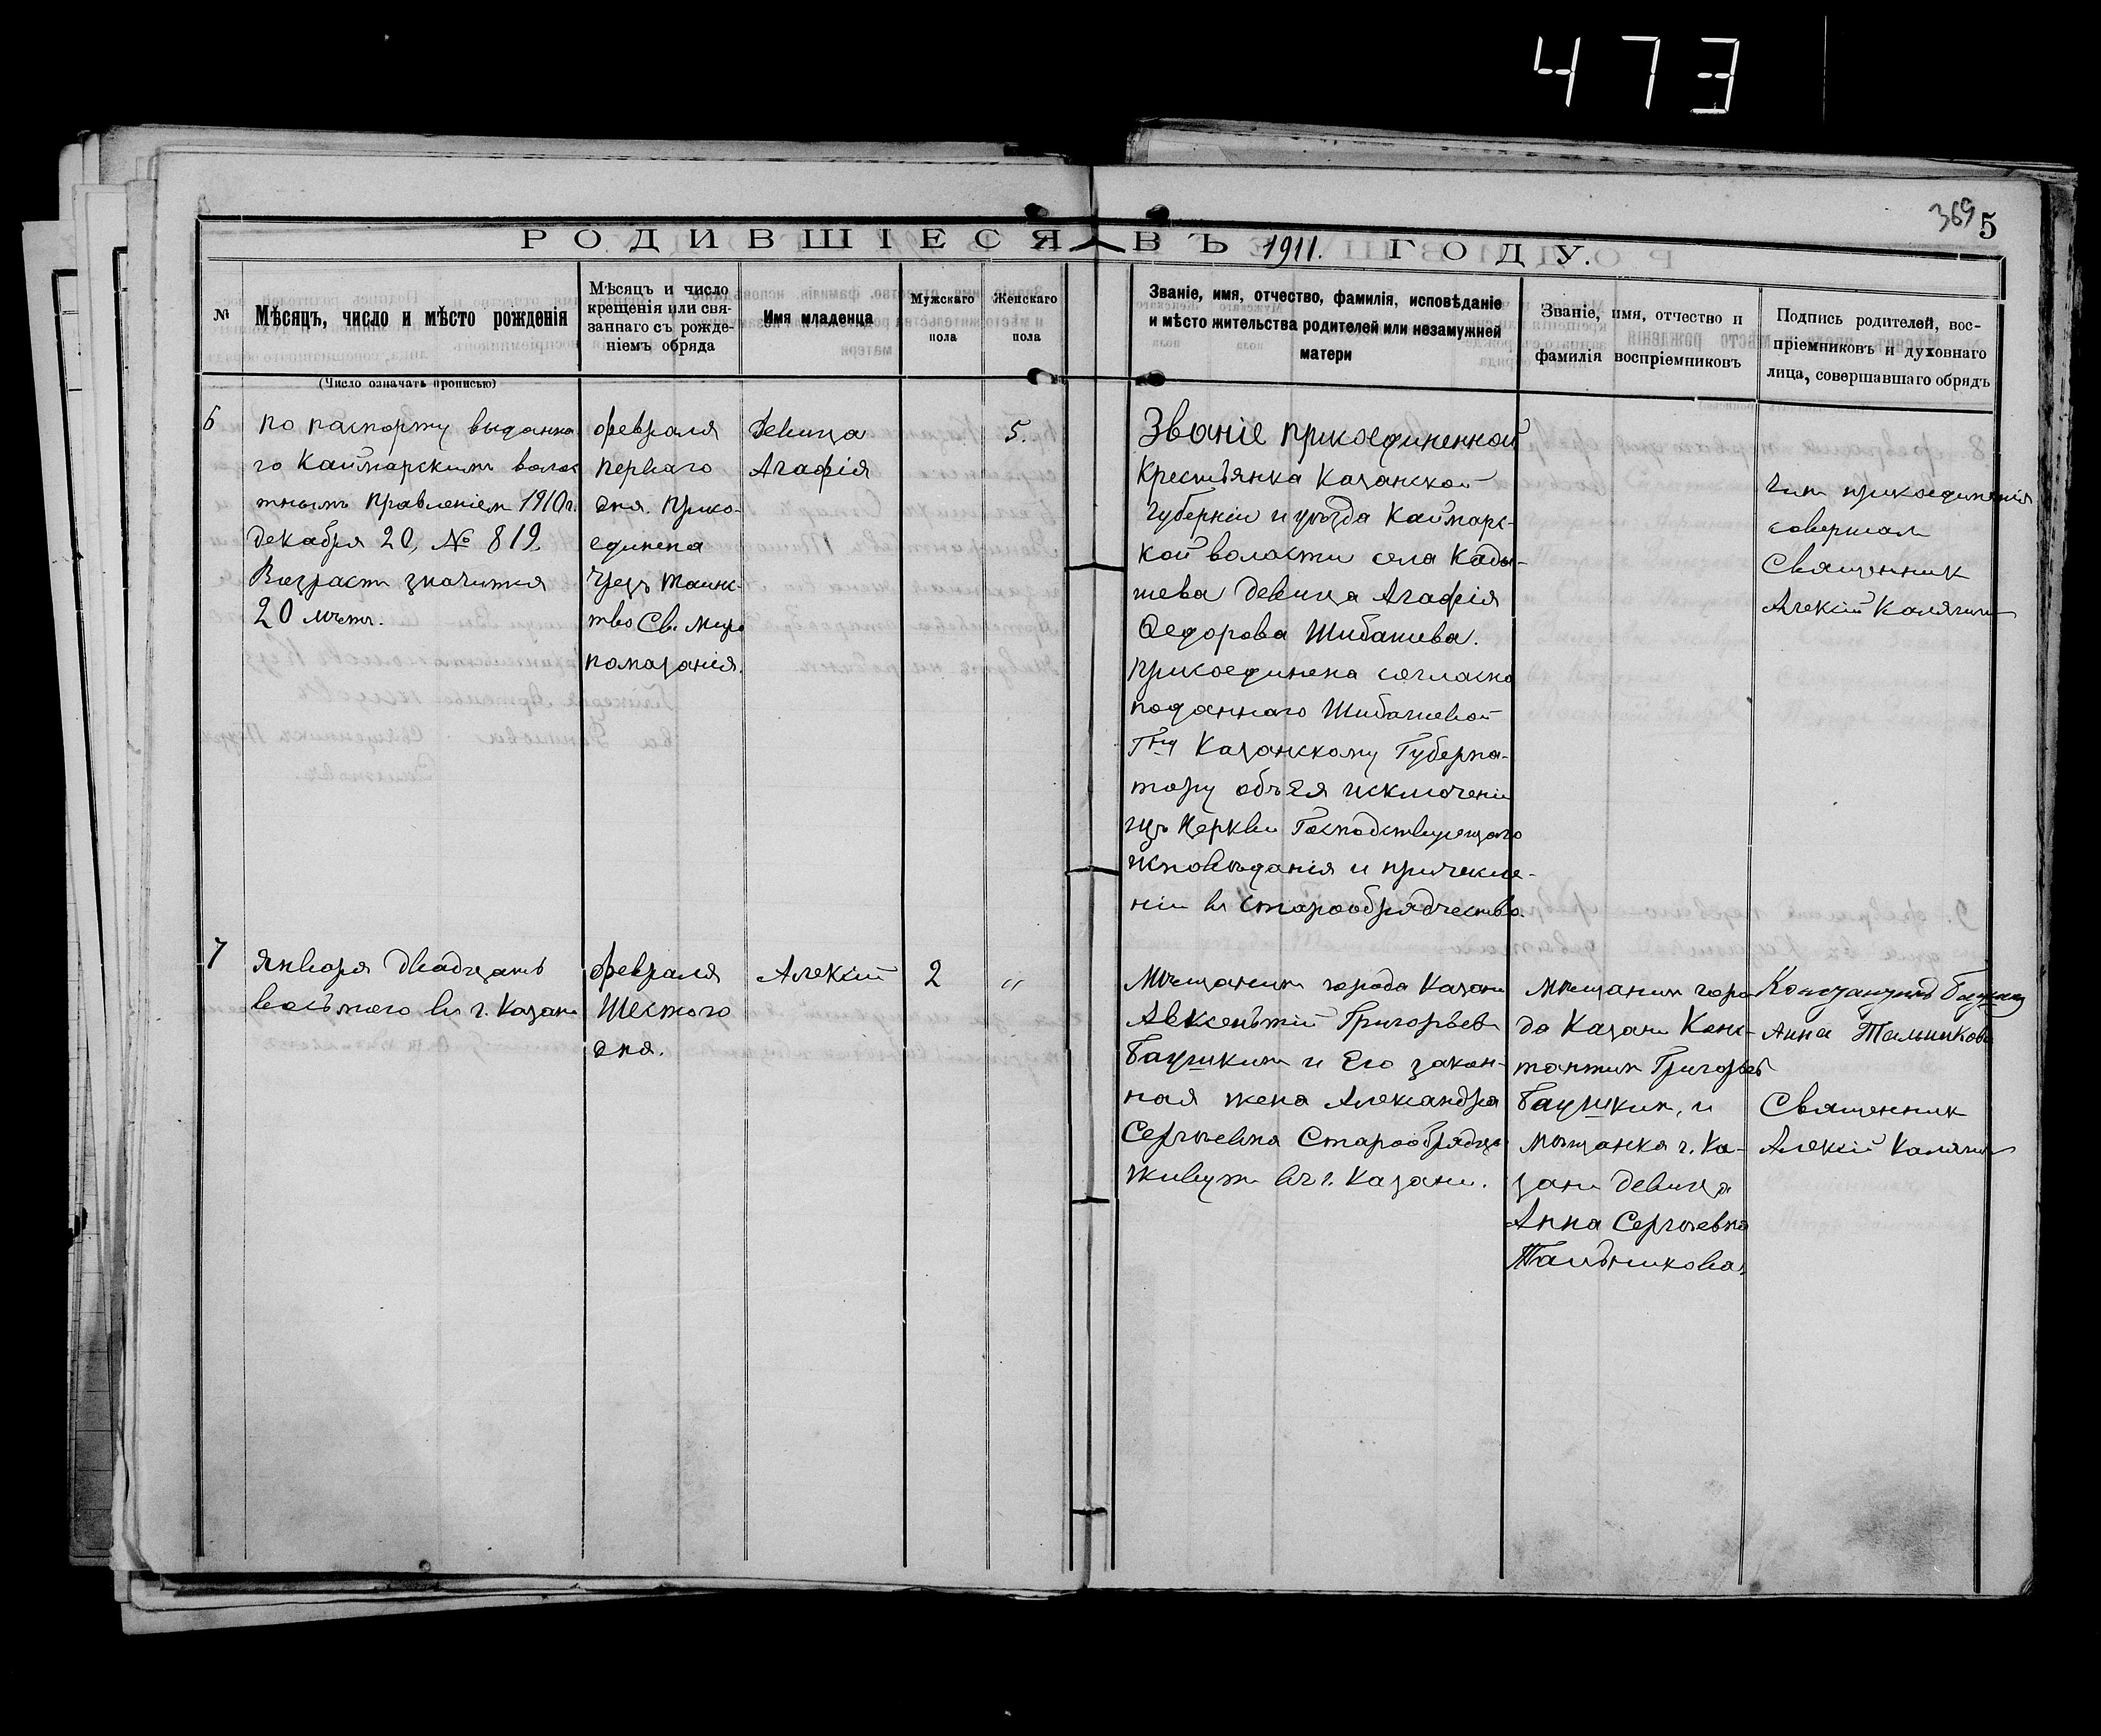 473
369 5
РОДИВШІЕСЯ ВЪ 1911. ГОДУ.
№
Мѣсяцъ, число и мѣсто рожденія
(Число означать прописью)
Мѣсяцъ и число
крещенія или свя-
заннаго съ рожде-
ніемъ обряда
Имя младенца
Мужскаго
пола
Женскаго
пола
Званіе, имя, отчество, фамилія, исповѣданіе
и мѣсто жительства родителей или незамужней
матери
Званіе, имя, отчество и
фамилія воспріемниковъ
Подпись родителей, вос-
пріемниковъ и духовнаго
лица, совершавшаго обрядъ
6
по паспорту выданна
го Каймарскимъ волос
тнымъ правленіем 1910 г.
декабря 20, № 819.
Возрастъ значится
20 лѣтъ.
февраля
перваго
дня. Присо-
единена
чрезъ таинс-
тво Св. Миро
помазанія.
Девица
Агафія
5.
Званіе присоединенной
Крестьянка Казанской
Губерніи и уѣзда Каймарс-
кой волости села Кады-
шева девица Агафія
Ѳедорова Шибашева.
присоединена согласно
поданнаго Шибашевой
Казанскому Губерна-
тору объ ея исключеніи
изъ Церкви Господствующаго
исповѣданія и причисле-
ніи въ старообрядчество.
Чин присоединенія
совершал
Священник
Алексій Калягинъ
7
Января двадцать
восьмого въ г. Казани
февраля
Шестого
дня.
Алексій
2
"
Мѣщанинъ города Казани
Авксентій Григорьевъ
Баушкин и Его закон-
ная жена Александра
Сергѣевна Старообрядцы
живутъ въ г. Казани.
Мѣщанин горо
да Казани Конс-
тантин Григорьев
Баушкин, и
мѣщанка г. Ка-
зани девица
Анна Сергѣевна
Тальникова.
Константинъ Баушкин
Анна Тальникова
Священник
Алексій Калягинъ